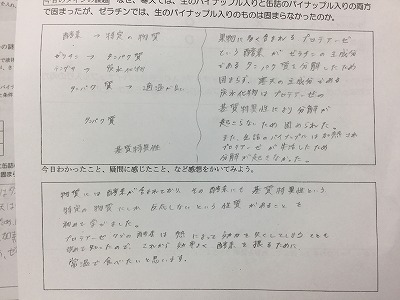 今日のメインの課題　なぜ、寒天では、生のパイナップル入りと缶詰のパイナップル入りの両方
で固まったが、ゼラチンでは、生のパイナップル入りのものは固まらなかったのか。
酵素 → 特定の物質
ゼラチン → タンパク質
炭水化物
タンパク質 →
タンパク質
基質特異性
果物に多く含まれるプロテアーゼ
という酵素がゼラチンの主成分
であるタンパク質を分解したため
固まらず、寒天の主成分である
炭水化物はプロテアーゼの
基質特異性により分解が
起こらないため固められた。
また、缶詰のパイナップルは加熱され
プロテアーゼが失活したため
分解が起きなかった。
今日わかったこと、疑問に感じたこと、など感想をかいてみよう。
物質には酵素が含まれており、その酵素にも基質特異性という
特定の物質にしか反応しないという性質があることを
初めて学びました。
プロテアーゼなどの酵素は熱によって効力を失くしてしまうことも
初めて知ったので、これから効率よく酵素を摂るために
常温で食べたいと思います。